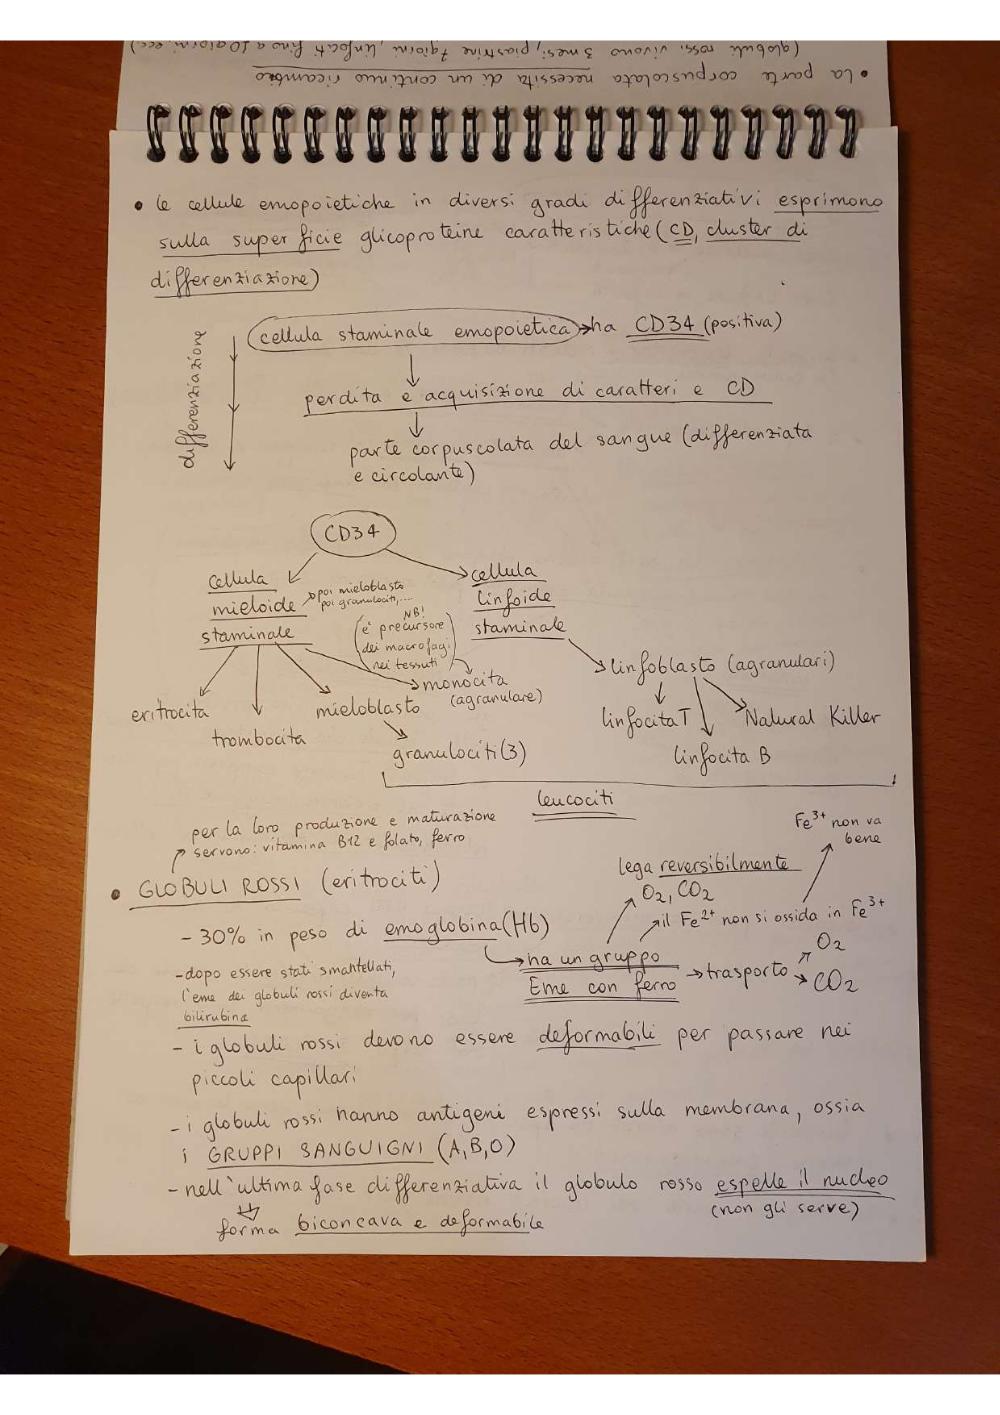 • La parte corpuscolata necessita di un continuo ricambio
(globuli rossi vivono 3 mesi, piastrine 7 giorni, linfociti fino a 10 giorni, ecc)
• le cellule emopoietiche in diversi gradi differenziativi esprimono
sulla superficie glicoproteine caratteristiche (CD, cluster di
differenziazione)
differenziazione
cellula staminale emopoietica → ha CD34 (positiva)
perdita e acquisizione di caratteri e CD
parte corpuscolata del sangue (differenziata
e circolante)
CD34
cellula
mieloide
staminale
poi mieloblasto
poi granulociti,...
NB!
(è precursore
dei macrofagi
nei tessuti)
cellula
linfoide
staminale
eritrocita
trombocita
mieloblasto
monocita
(agranulare)
granulociti (3)
linfoblasto (agranulari)
linfocita T
linfocita B
Natural Killer
leucociti
per la loro produzione e maturazione
servono: vitamina B12 e folato, ferro
• GLOBULI ROSSI (eritrociti)
Fe3+ non va
bene
lega reversibilmente
O2, CO2
il Fe2+ non si ossida in Fe3+
- 30% in peso di emoglobina (Hb)
→ ha un gruppo
Eme con ferro → trasporto
O2
CO2
- dopo essere stati smantellati,
l'eme dei globuli rossi diventa
bilirubina
- i globuli rossi devono essere deformabili per passare nei
piccoli capillari
- i globuli rossi hanno antigeni espressi sulla membrana, ossia
i GRUPPI SANGUIGNI (A,B,0)
- nell'ultima fase differenziativa il globulo rosso espelle il nucleo
(non gli serve)
forma biconcava e deformabile